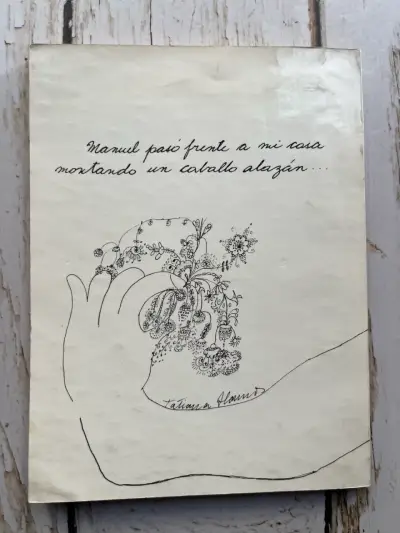 Manuel pasó frente a mi casa
montando un caballo alazán...
Tatiana Alamos